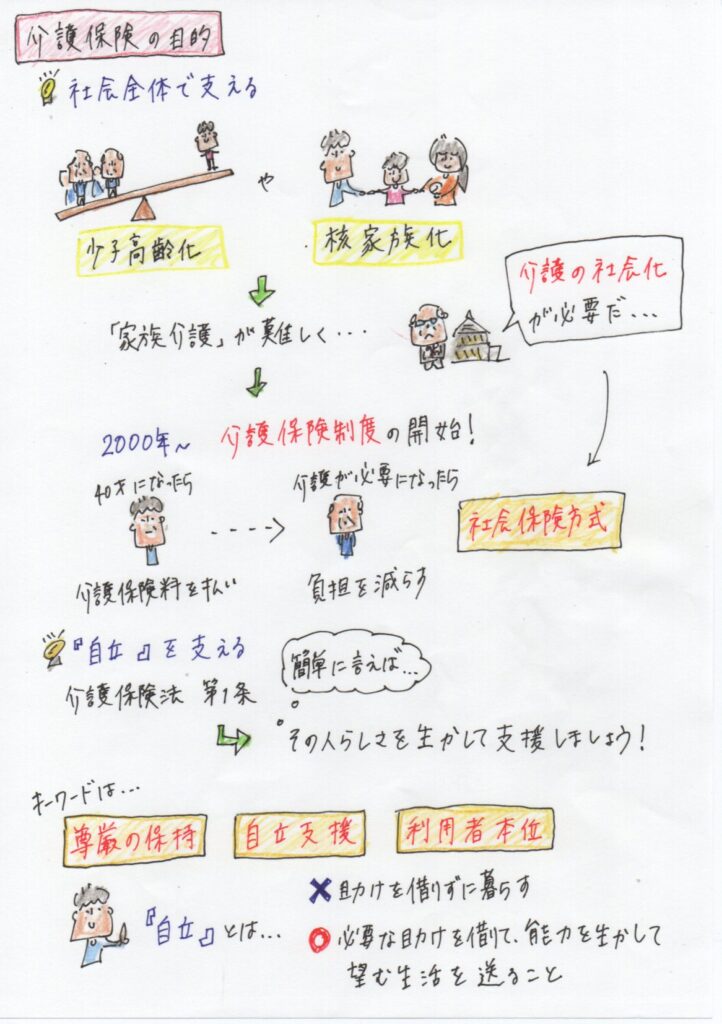 介護保険の目的
社会全体で支える
や
少子高齢化
核家族化
介護の社会化
が必要だ...
「家族介護」が難しく...
2000年~ 介護保険制度の開始!
40才になったら
介護が必要になったら
社会保険方式
介護保険料を払い
負担を減らす
『自立』を支える
簡単に言えば...
介護保険法 第1条
その人らしさを生かして支援しましょう!
キーワードは...
尊厳の保持
自立支援
利用者本位
『自立』とは...
×助けを借りずに暮らす
○必要な助けを借りて、能力を生かして
望む生活を送ること